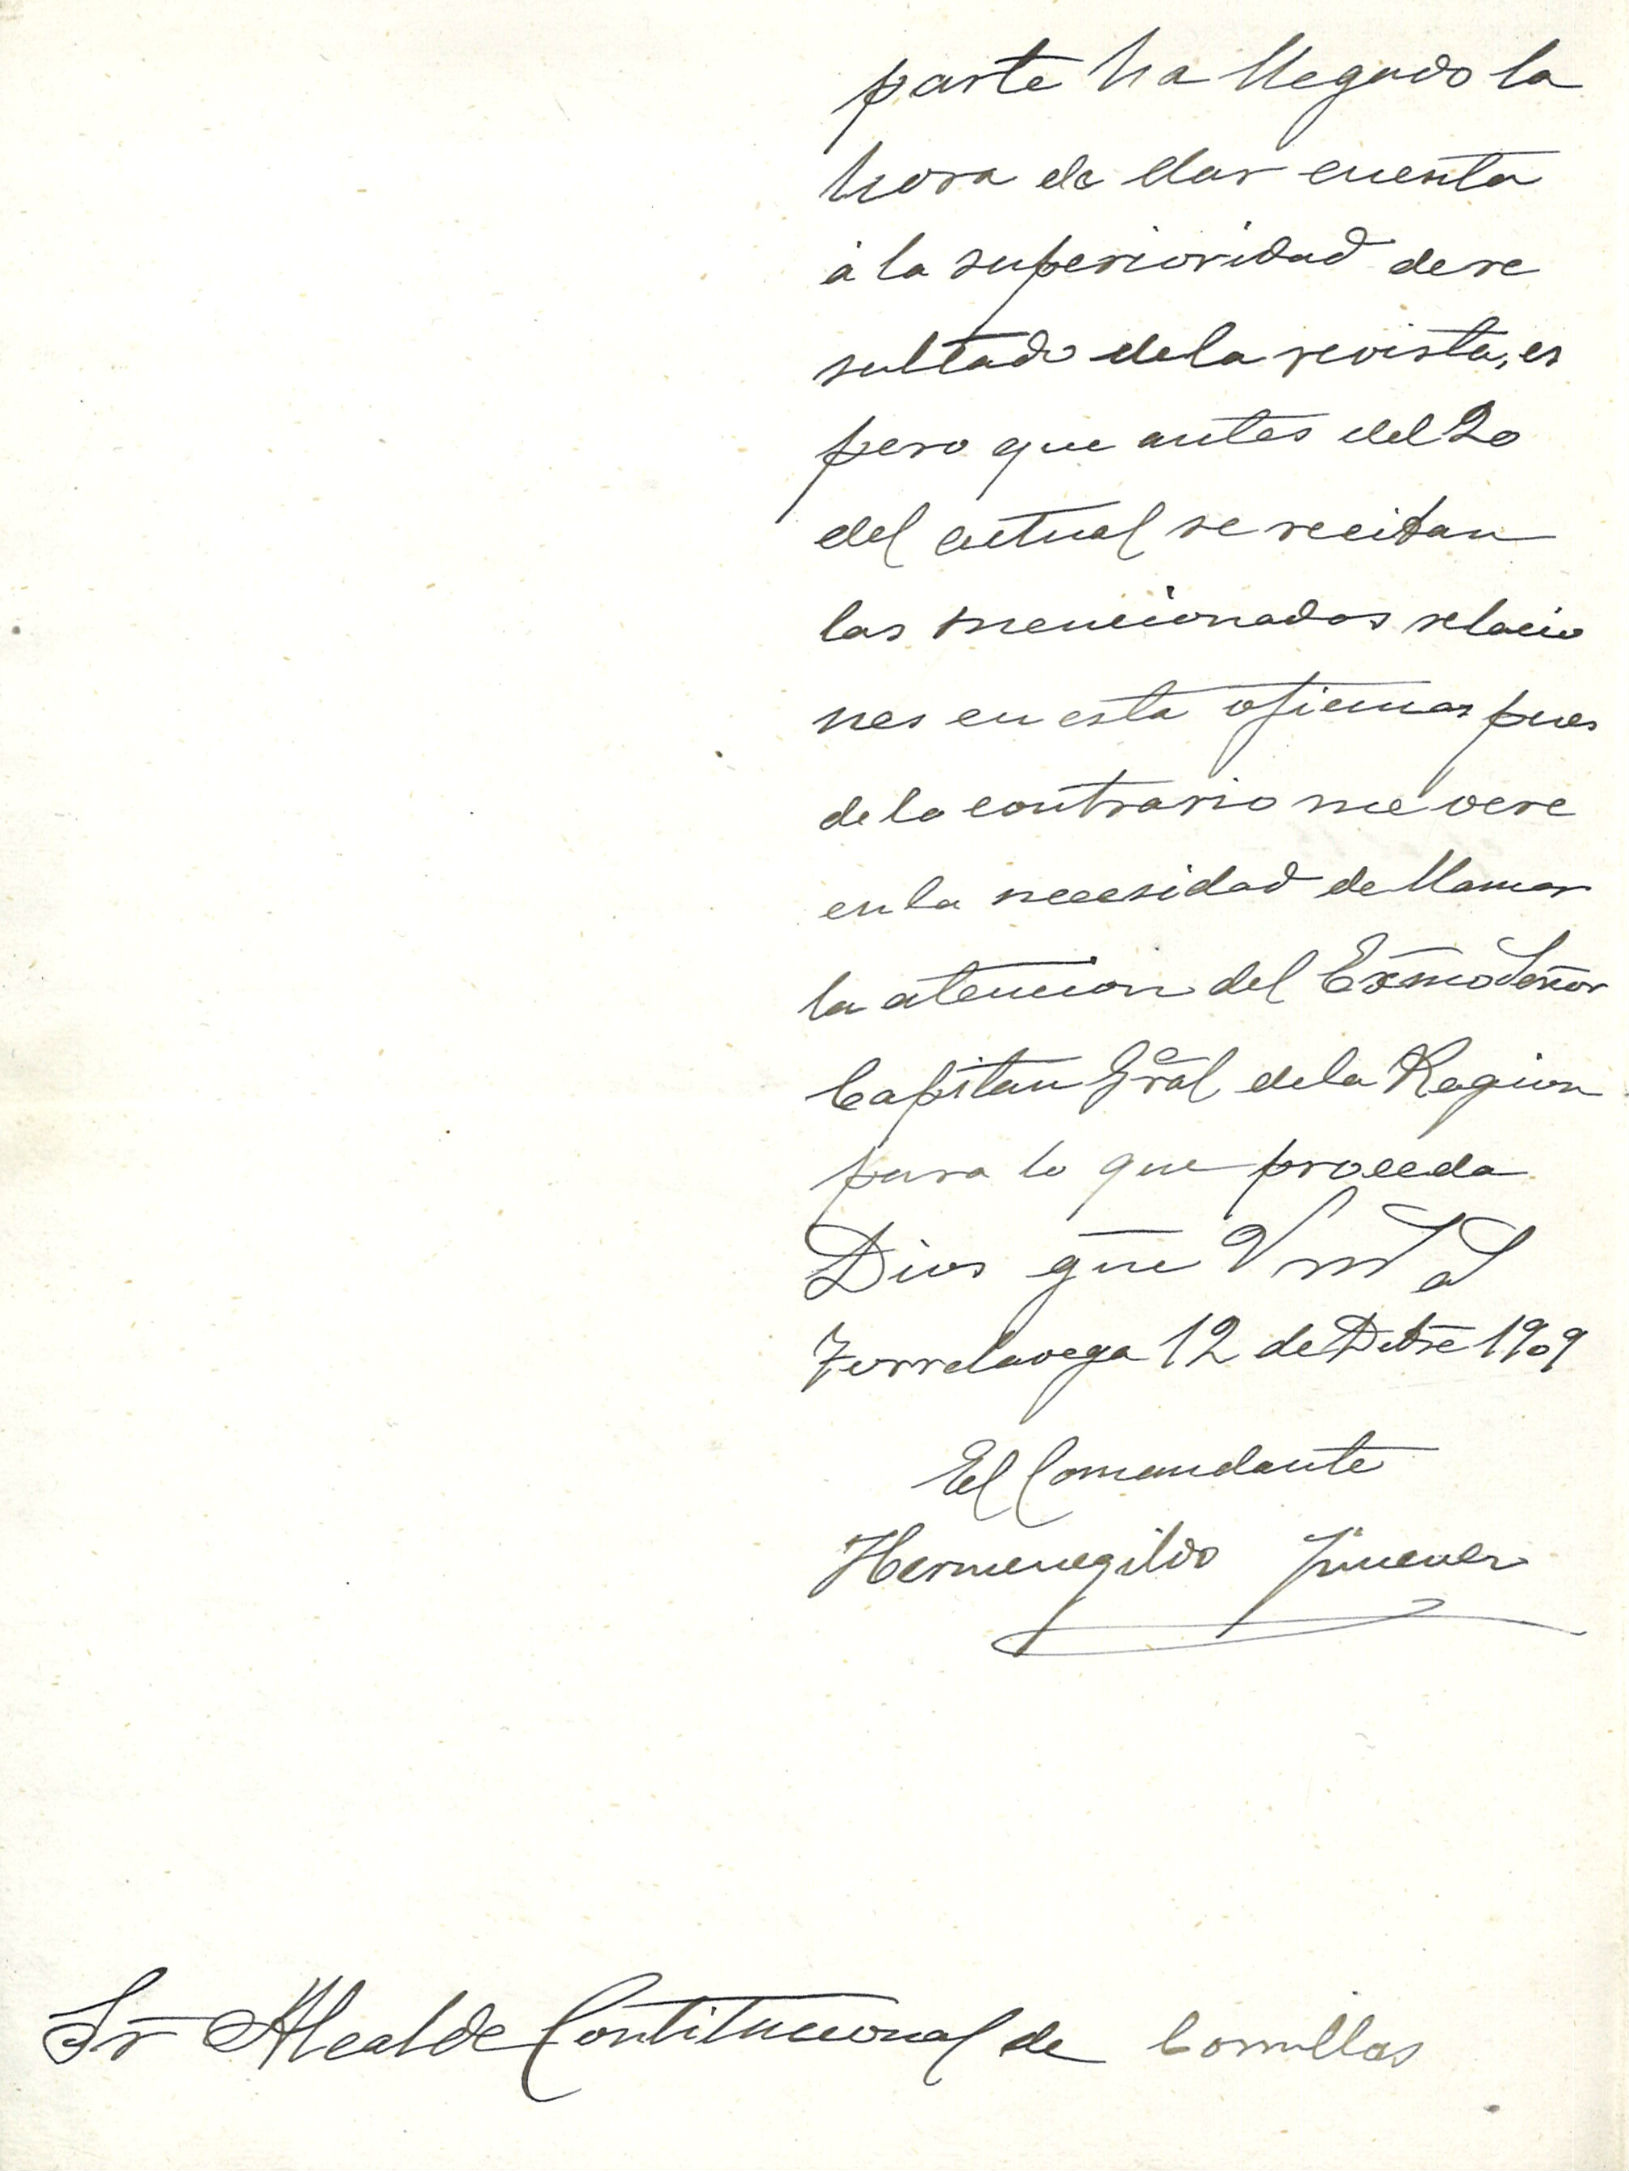 parte ha llegado la
hora de dar cuenta
á la superioridad de re
sultado de la revista, es
pero que antes del 20
del actual se reciban
las mencionadas relacio
nes en esta oficinas pues
de lo contrario me vere
en la necesidad de llamar
la atencion del Exmo Señor
Capitan Gral de la Region
para lo que proceda
Dios gue V m a
Torrelavega 12 de Dbre 1909
El Comandante
Hermenegildo Jimenez
Sr Alcalde Contitucional de Comillas